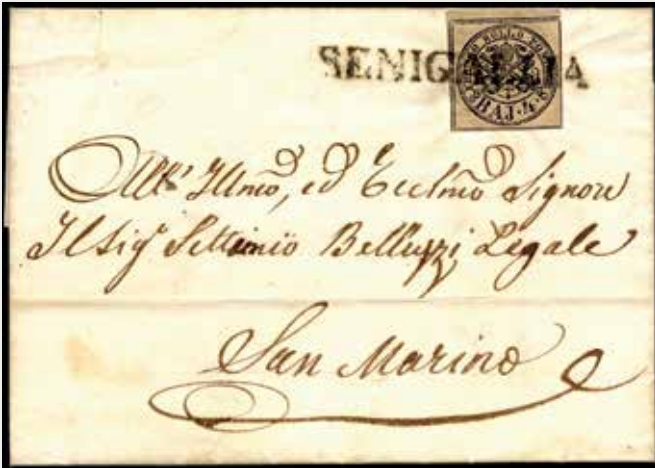 SENIGALLIA
BOLLO
BAJ·4·
All' Illmo, ed Ecclmo Signore
Il Sigr Settimio Belluzzi Legale
San Marino